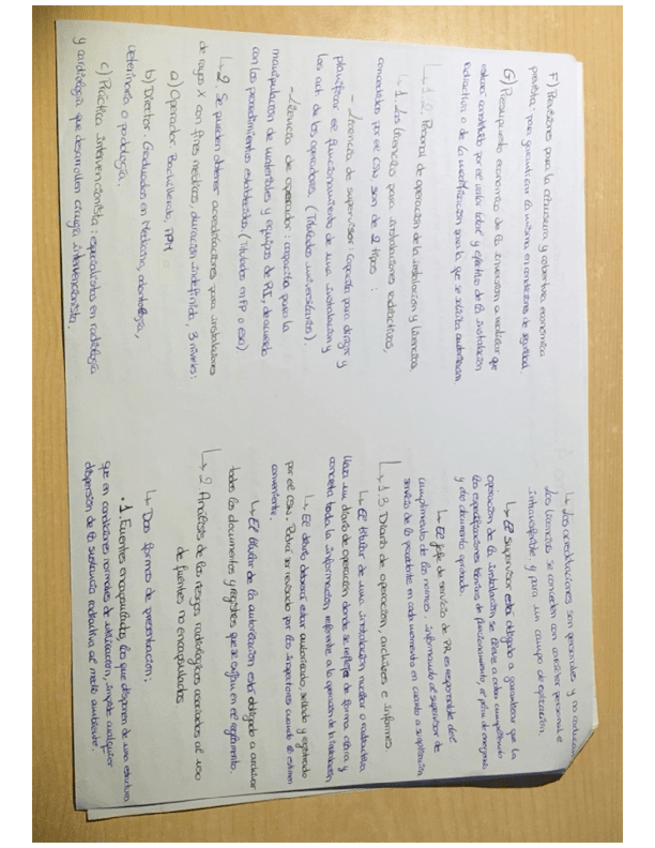 F) Previsiones para la clausura y cobertura económica
prevista para garantizar la misma en condiciones de seguridad.
G) Presupuesto económico de la inversión a realizar que
estará constituido por el valor total y efectivo de la instalación
radiactiva o de la modificación para la que se solicita autorización.
↳ 1.2. Personal de operación de la instalación y licencia
↳ 1. Las licencias para instalaciones radiactivas,
concedidas por el CSN son de 2 tipos :
- Licencia de supervisor : capacita para dirigir y
planificar el funcionamiento de una instalación y
las act. de los operadores. (Titulados universitarios).
- Licencia de operador : capacita para la
manipulación de materiales y equipos de RI, de acuerdo
con los procedimientos establecidos. (Titulados en FP o eso)
↳ 2. Se pueden obtener acreditaciones para instalaciones
de rayos X con fines médicos, duración indefinida, 3 niveles:
a) Operador. Bachillerato,
b) Director. Graduados en Medicina, odontología,
veterinaria o podología.
c) Práctica intervencionista : especialistas en radiología
y cardiología que desarrollen cirugía intervencionista.
↳ Las acreditaciones son personales y no caducan
Las licencias se conceden con carácter personal e
intransferible y para un campo de aplicación.
↳ El supervisor está obligado a garantizar que la
operación de la instalación se lleve a cabo cumpliendo
las especificaciones técnicas de funcionamiento, el plan de emergencia
y documento aprobado.
↳ El jefe de servicio de PR es responsable del
cumplimiento de las normas, informando al supervisor de
servicio de lo procedente en cada momento en cuanto a su aplicación
↳ 1.3 Diario de operación, archivos e informes
↳ El titular de una instalación nuclear o radiactiva
lleva un diario de operación donde se refleje de forma clara y
concreta toda la información referente a la operación de la instalación
↳ El diario deberá estar autorizado, sellado y registrado
por el CSN. Podrá ser revisado por los inspectores cuando lo estimen
conveniente.
↳ El titular de la autorización está obligado a archivar
todos los documentos y registros que se exijan en el reglamento.
↳ 2 Análisis de los riesgos radiológicos asociados al uso
de fuentes no encapsuladas
↳ Dos formas de presentación:
• 1. Fuentes encapsuladas, las que disponen de una estructura
que en condiciones normales de utilización, impide cualquier
dispersión de la sustancia radiactiva al medio ambiente.